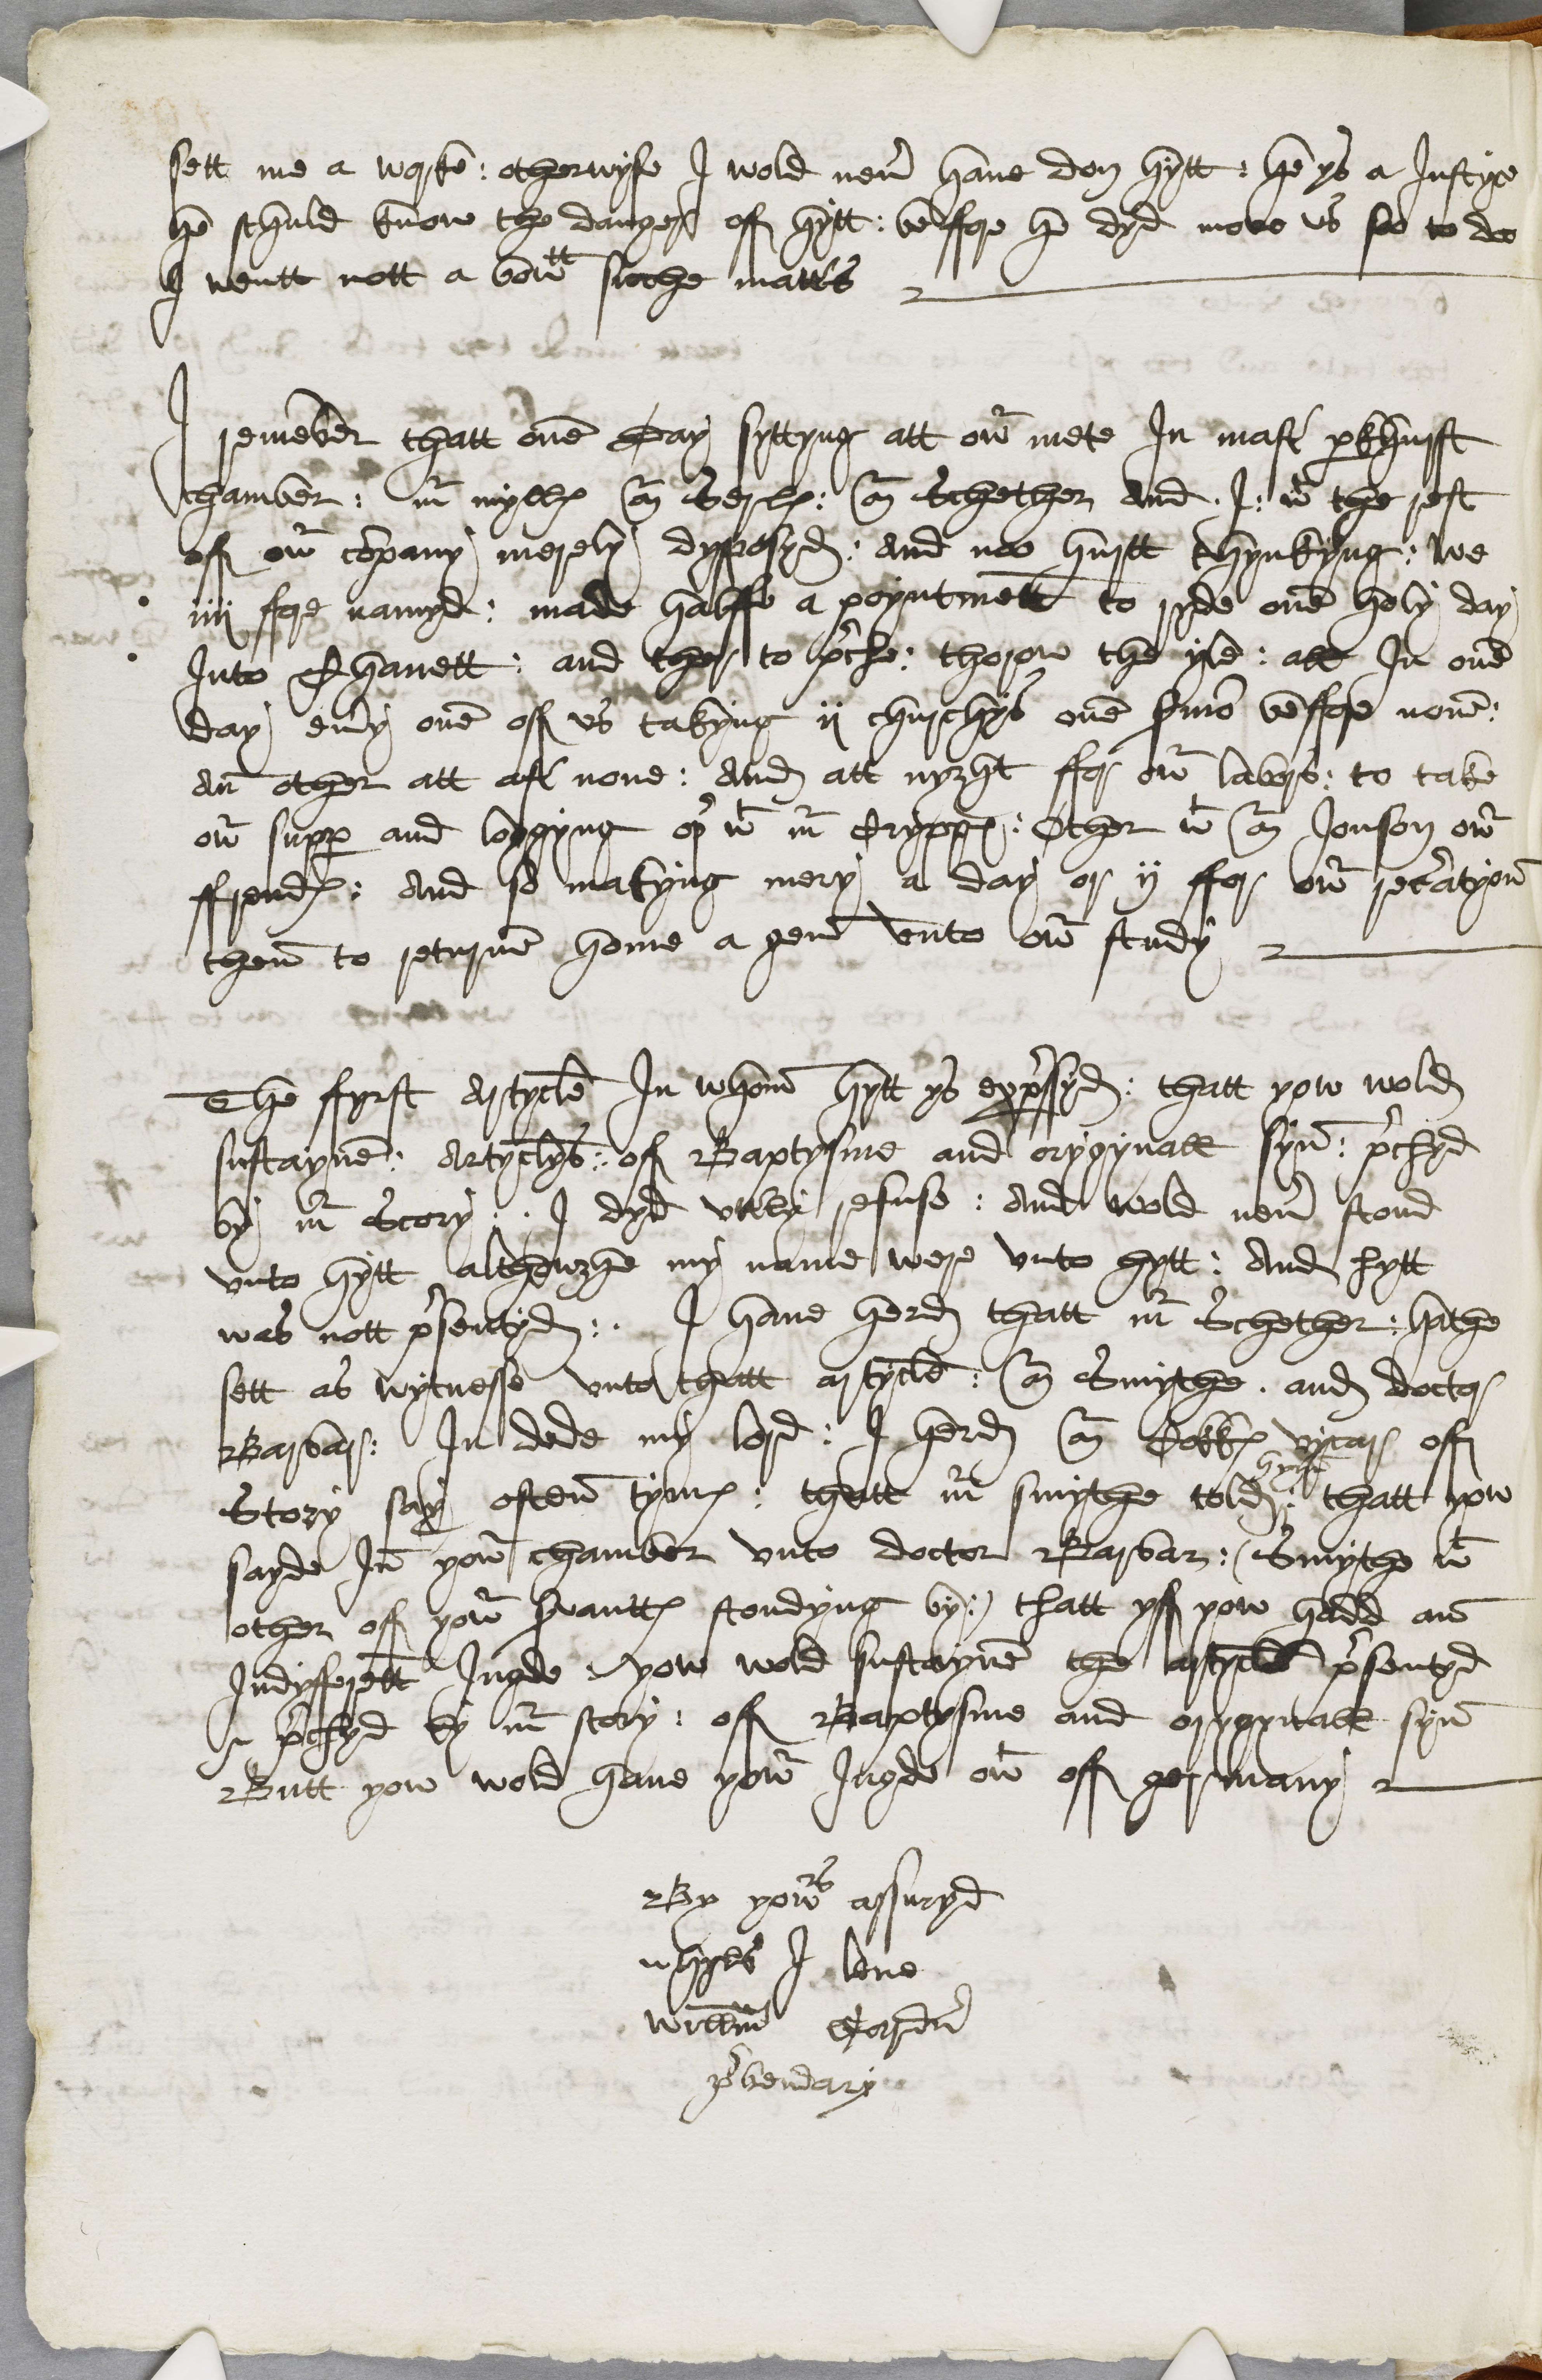 sett me a worke : otherwyse I wold neuer haue don hytt : he ys a Justyce
he schuld know the danger off hytt : beffore he dyd move vs soo to doo
I wentt nott a bowtt suche matters
I remeber thatt one Day syttyng att owr mete In master parkhurst
chamber : mr myllys Sr Serlys : Sr Schether And . I : wt the rest
off owr copany merely dysposyd : And noo hurtt thynkyng : we
iiij ffore namyd : made halffe a poyntmett to ryde one holy day
Into Thanett : and ther to preche : thorow the yle : all In one
day euery one off vs takyng ij churchys one sermo beffore none :
An other att after none : And att nyzht ffor owr labors : to take
owr supper and lodgyng oyr wt mr Cryppys : Other wt Sr Jonson owr
ffrendys : And so makyng mery a day or ij ffor owr recreatyon
then to returne home a gen vnto owr study
The ffyrst Artycle In whome hytt ys expressyd : thatt yow wold
sustayne : Artyclys : off Baptysme and orygynall syn : prechyd
by mr Scory : . I dyd vtterly refuse : And wold neuer stond
vnto hytt althowzhe my name were vnto hytt : And hytt
was nott presentyd : . I haue herd thatt mr Schether : hathe
sett as wytnesse vnto thatt artycle : Sr Smythe . and doctor
Barbar : In dede my lord : I herd Sr Cokks vycar off
Story say often tyms : thatt mr smythe told hym : thatt yow
sayde In yowr chamber vnto doctor Barbar : (Smythe wt
other off yowr servantts stondyng by :) thatt yff yow hadd an
Indyfferett Jugde : yow wold sustayne the artycle presentyd
r prechyd by mr scory : off Baptysme and orygynall syn
Butt yow wold haue yowr Jugde owt off germany
By yowrs assuryd
whyls I leve
Willm Gardner
prebendary